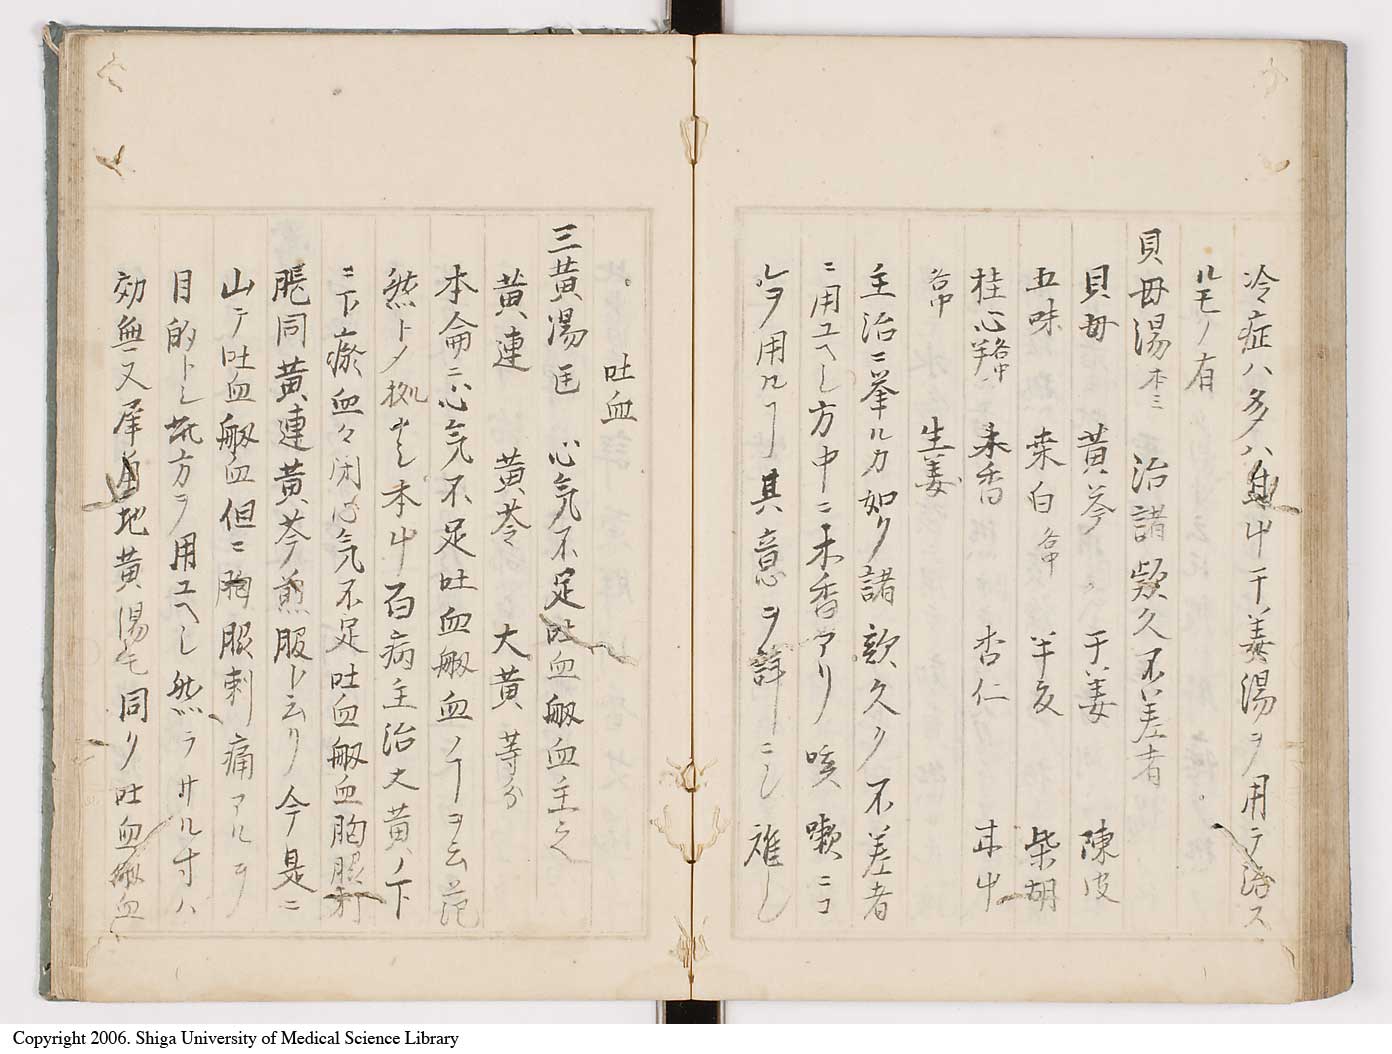 冷症ハ多ハ甘中干姜湯ヲ用テ治ス
ルモノ有
貝母湯 本ミ 治諸欬久不差者
貝母 黄芩 干姜 陳皮
五味 桒白 各中 半夏 柴胡
桂心 各中 木香 杏仁 甘中
各中 生姜
主治ニ挙ルカ如ク諸欬久ク不差者
ニ用ユヘし方中ニ木香アリ咳嗽ニコ
レヲ用ルヿ其意ヲ詳ニし雖し
吐血
三黄湯 匡 心気不足吐血衂血主之
黄連 黄芩 大黄 等分
本侖ニ心気不足吐血衂血ノヿヲ云茫
然トメ拠ナし本中百病主治大黄ノ下
ニ下瘀血々閉心気不足吐血衂血胸脹刺
脹同黄連黄芩煎服ト云リ今是ニ
山テ吐血衂血但ニ胸脹刺痛アルヲ
目的トし此方ヲ用ユヘし然ラサル寸ハ
効無又犀角地黄湯モ同り吐血衂血